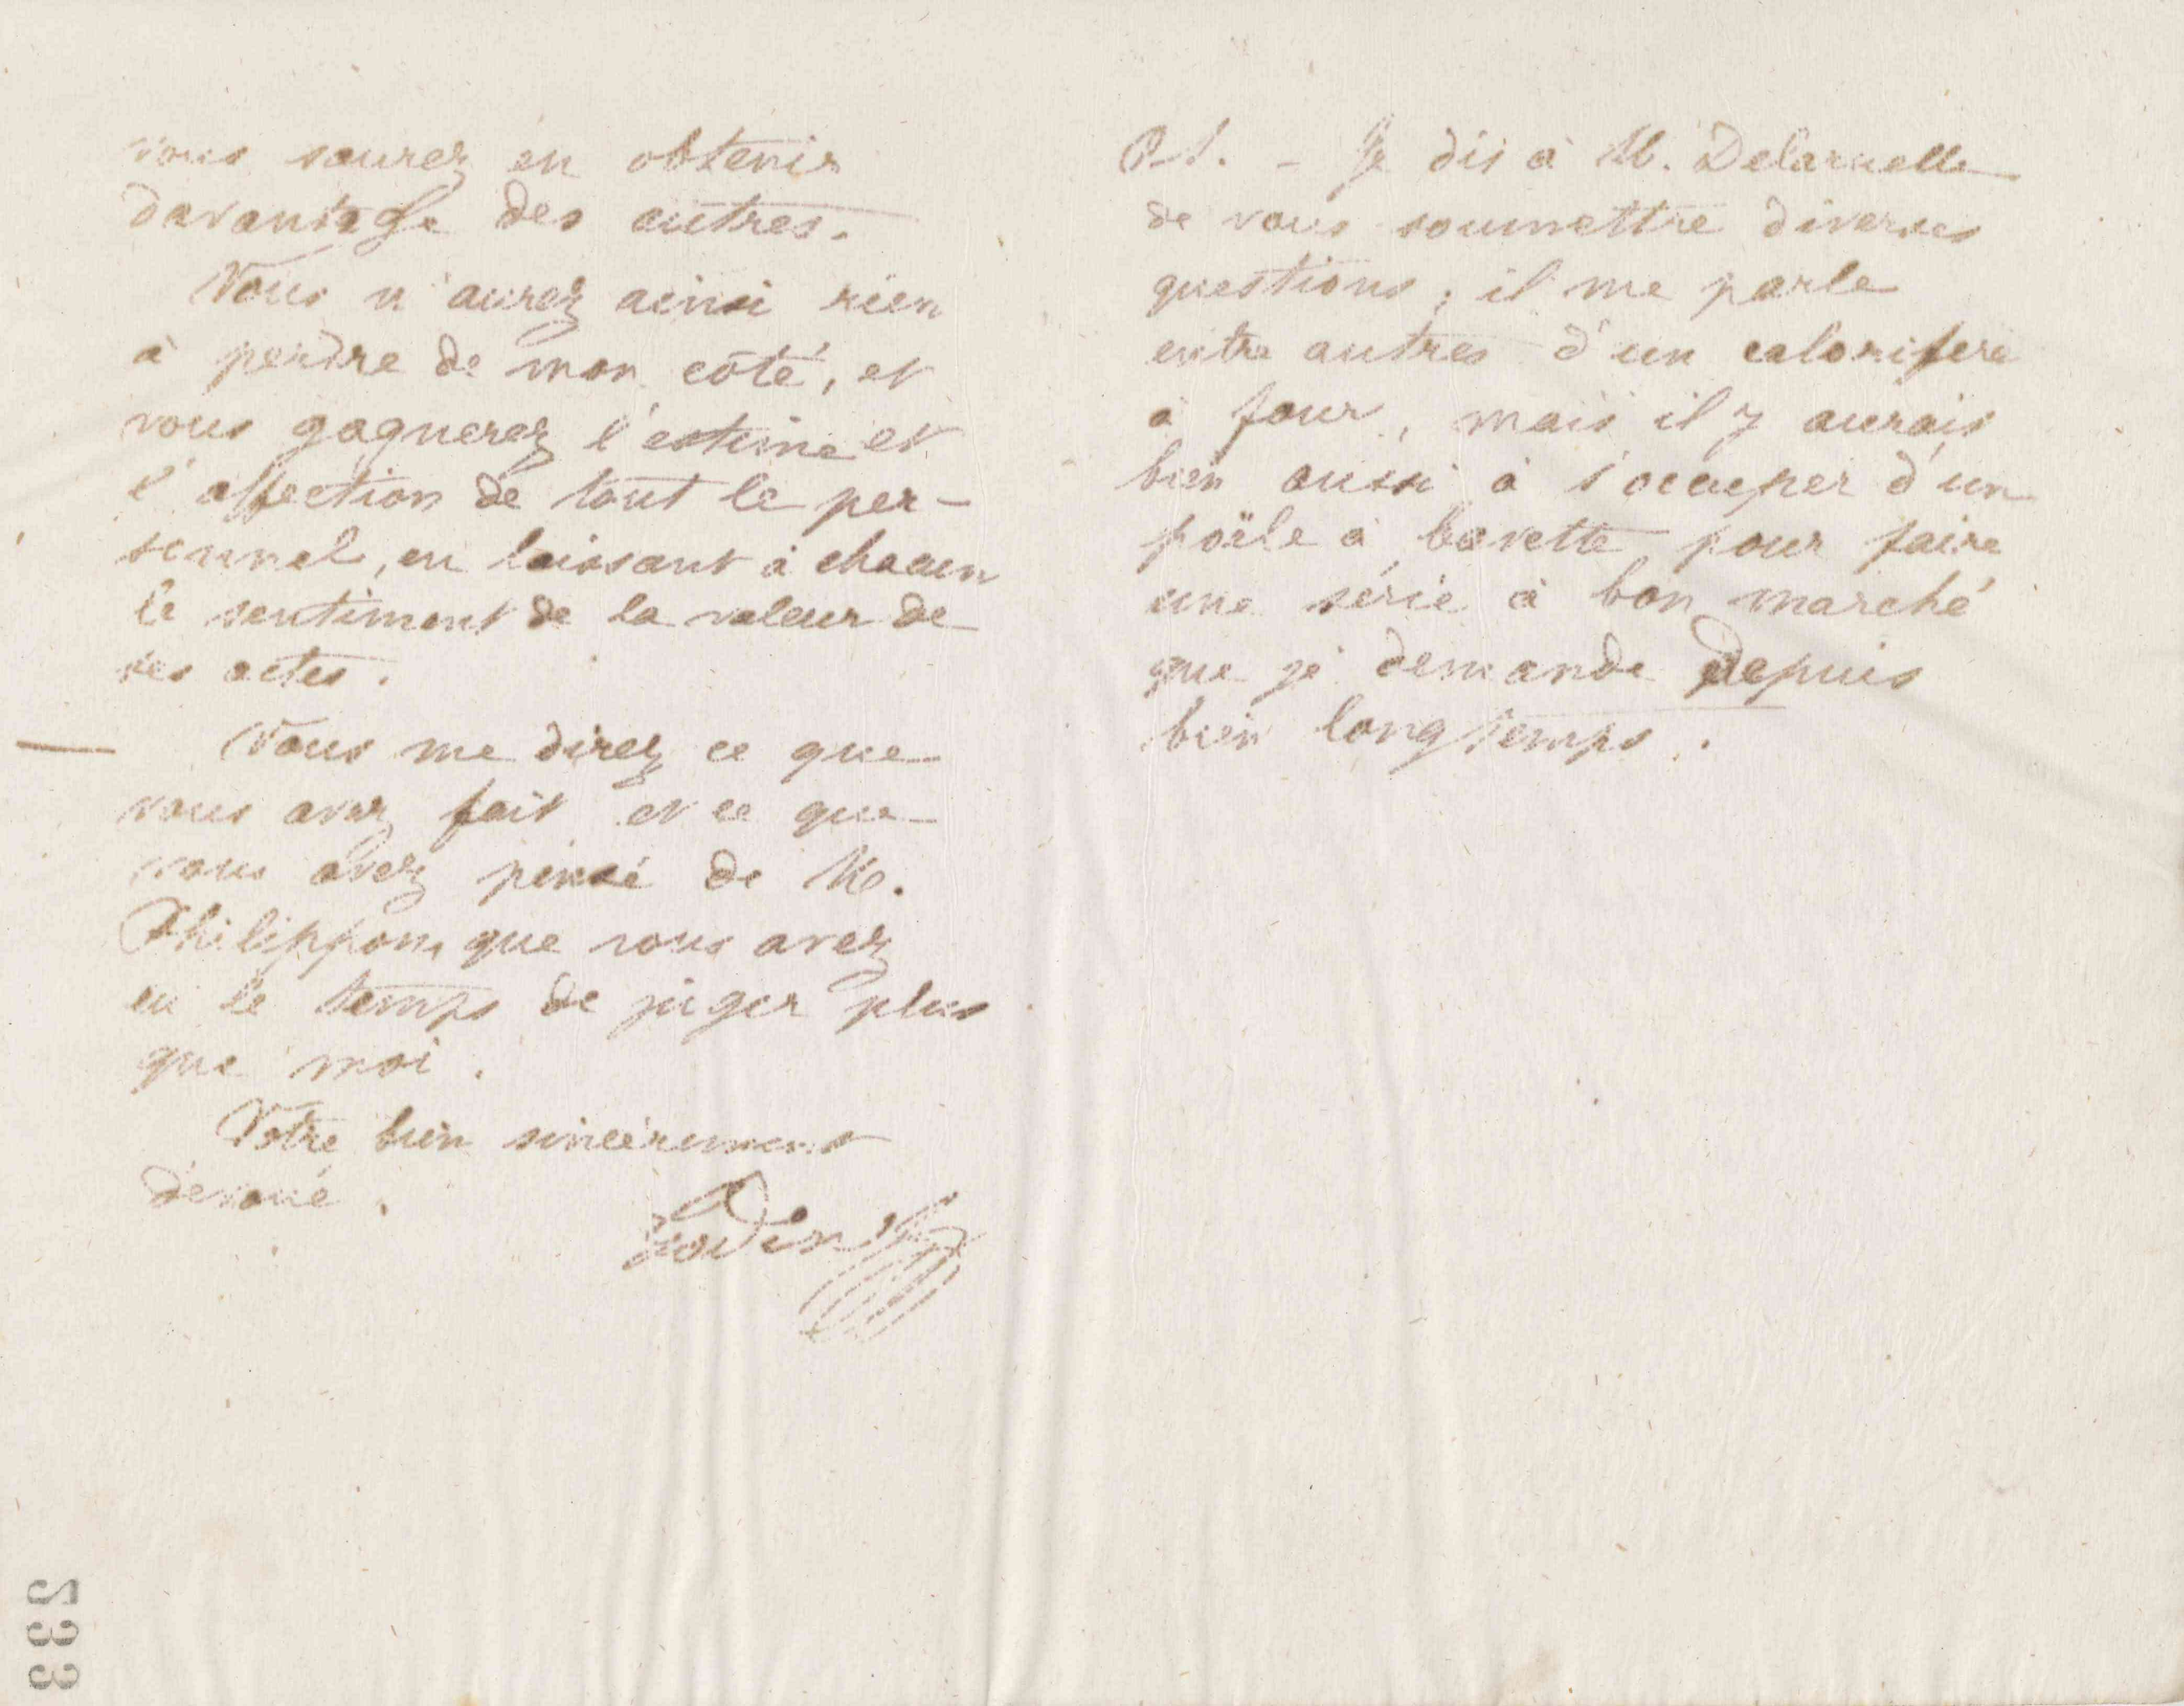 vous saurez en obtenir
davantage des autres.
Vous n'aurez ainsi rien
à perdre de mon côté, et
vous gagnerez l'estime et
l'affection de tout le per-
sonnel, en laissant à chacun
le sentiment de la valeur de
ses actes.
Vous me direz ce que
vous avez fait et ce que
vous avez pensé de M.
Philippon, que vous avez
eu le temps de juger plus
que moi.
Votre bien sincèrement
dévoué.
Godin
P.S. - Je dis à M. Delaruelle
de vous soumettre diverses
questions; il me parle
entre autres d'un calorifère
à four, mais il y aurait
bien aussi à s'occuper d'un
poële à bavette pour faire
une série à bon marché
que je demande depuis
bien longtemps.
233